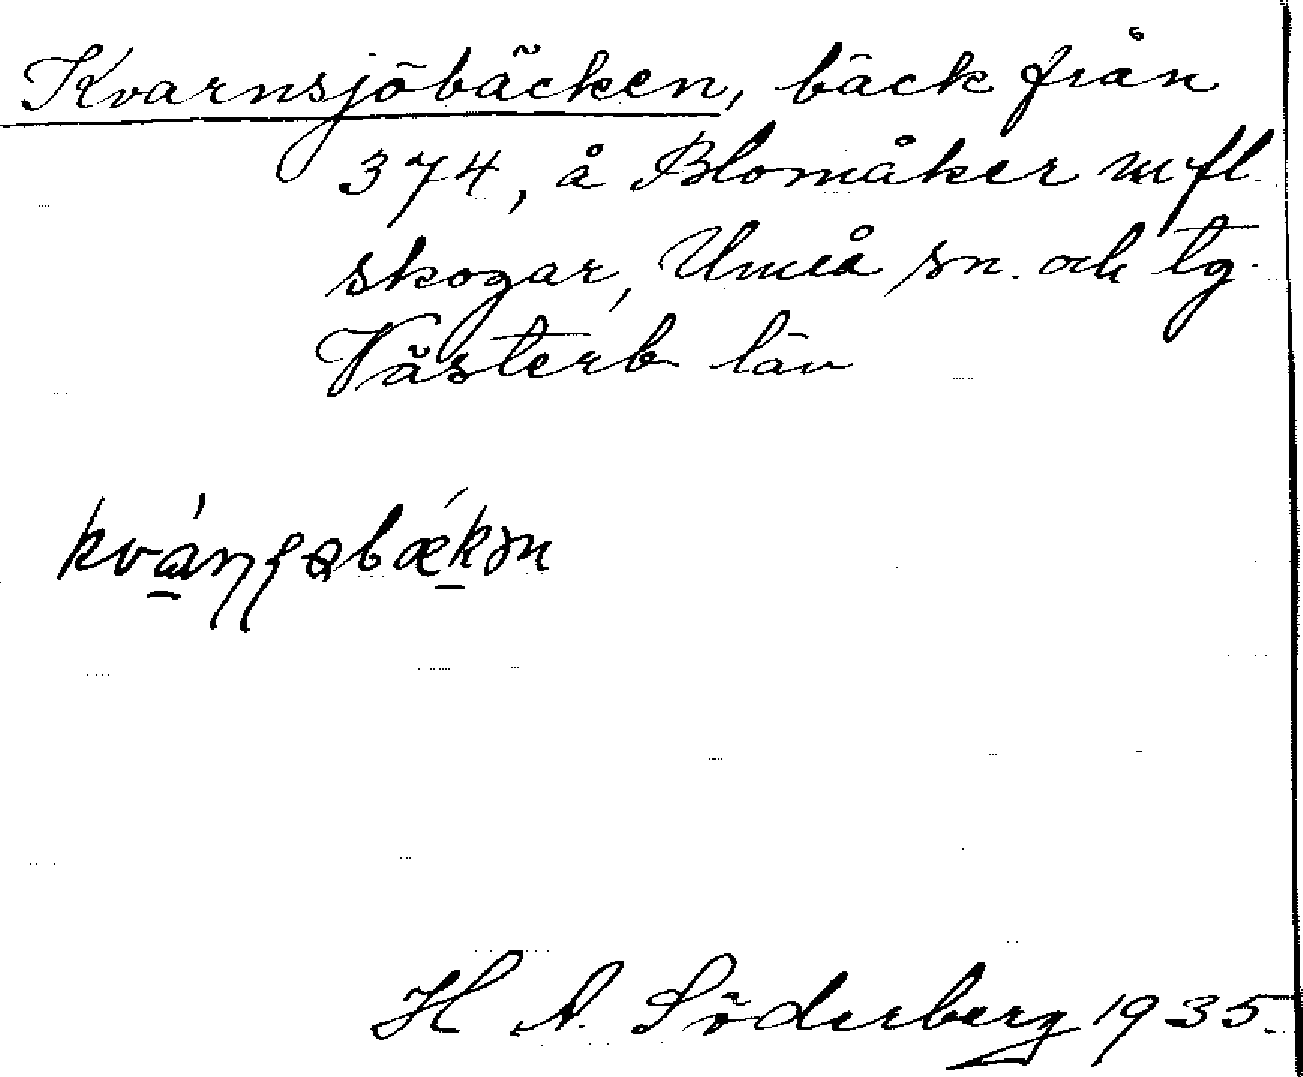 Kvarnsjöbäcken, bäck från
374, å Blomåker m fl
skogar, Umeå sn. och tg.
Västerb län
H A. Söderberg 1935.